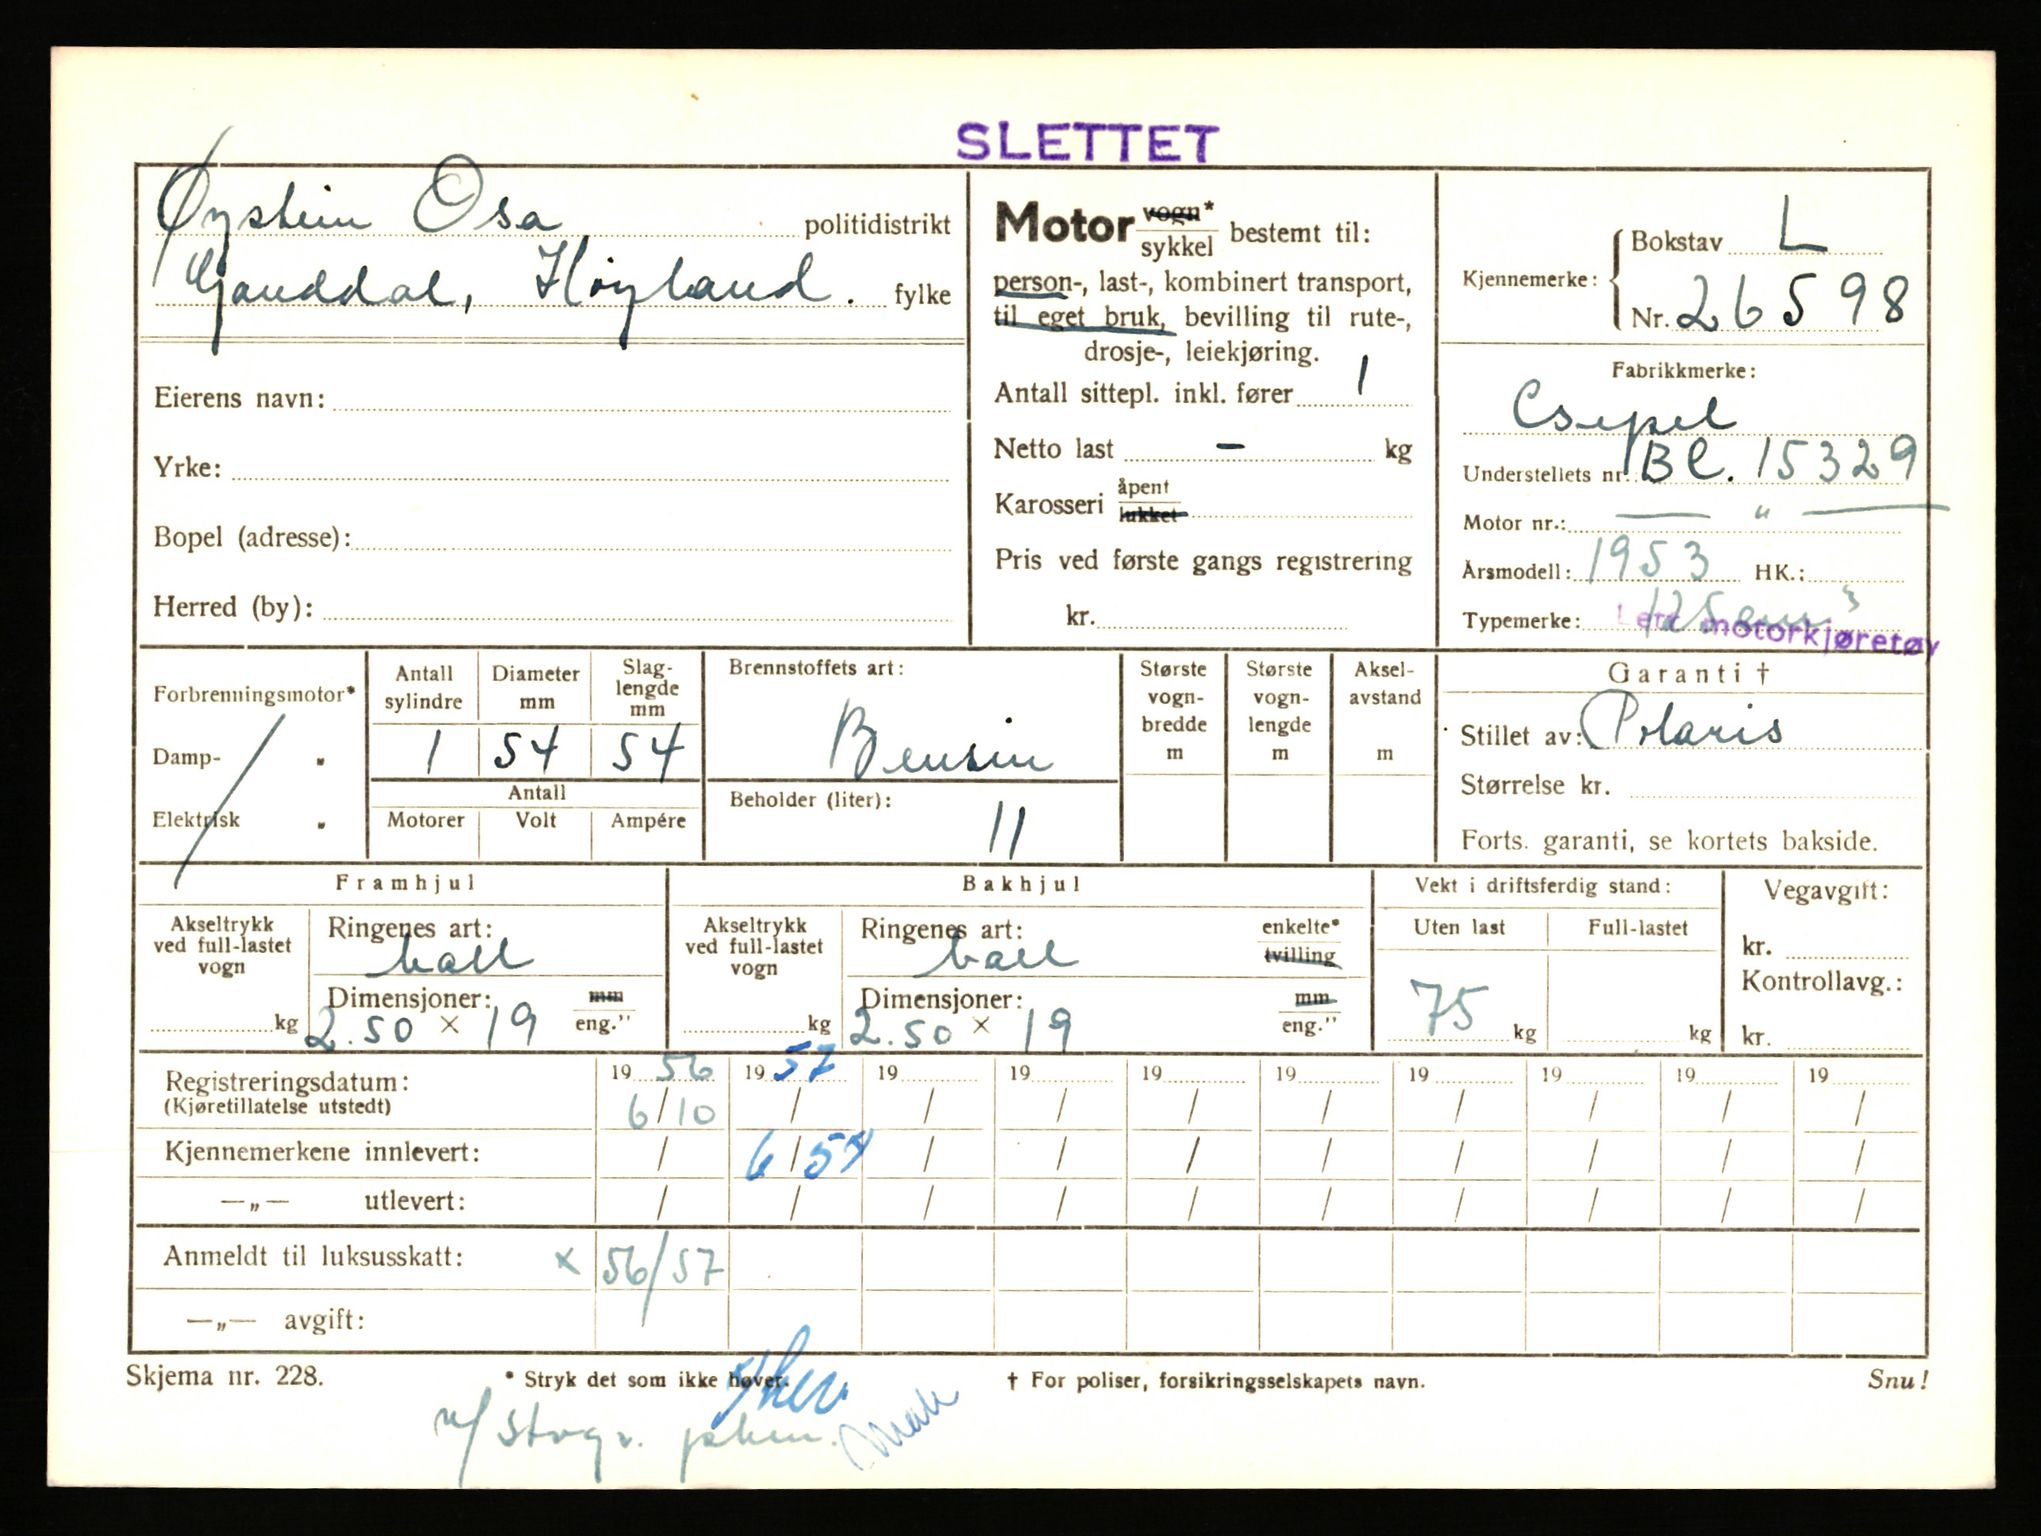 SLETTET
Øystein Osa politidistrikt
Ganddal, Høyland. fylke
Eierens navn:
Yrke:
Bopel (adresse):
Herred (by):
Motor vogn* sykkel bestemt til:
person-, last-, kombinert transport,
til eget bruk, bevilling til rute-,
drosje-, leiekjøring.
Antall sittepl. inkl. fører 1
Netto last – kg
Karosseri åpent lukket
Pris ved første gangs registrering
kr.
Kjennemerke: Bokstav L
Nr. 26598
Fabrikkmerke:
Csepel
Understellets nr. BL. 15329
Motor nr.: — " —
Årsmodell: 1953 HK.:
Typemerke: 125 cm³
Lett motorkjøretøy
Forbrenningsmotor*
Damp- "
Elektrisk "
Antall sylindre Diameter mm Slag-lengde mm
1 54 54
Antall
Motorer Volt Ampére
Brennstoffets art:
Bensin
Beholder (liter):
11
Største vogn-bredde m
Største vogn-lengde m
Aksel-avstand m
Garanti †
Stillet av: Polaris
Størrelse kr.
Forts. garanti, se kortets bakside.
Framhjul
Akseltrykk ved full-lastet vogn
kg
Ringenes art:
ball
Dimensjoner: mm eng."
2.50 × 19
Bakhjul
Akseltrykk ved full-lastet vogn
kg
Ringenes art: enkelte* tvilling
ball
Dimensjoner: mm eng."
2.50 × 19
Vekt i driftsferdig stand:
Uten last Full-lastet
75 kg kg
Vegavgift:
kr.
Kontrollavg.:
kr.
Registreringsdatum: 19 56 19 57 19 19 19 19 19 19 19 19
(Kjøretillatelse utstedt) 6/10 / / / / / / / / /
Kjennemerkene innlevert: / 6/57 / / / / / / / /
—„— utlevert: / / / / / / / / / /
Anmeldt til luksusskatt: × 56/57
—„— avgift:
Skjema nr. 228. * Stryk det som ikke høver. † For poliser, forsikringsselskapets navn. Snu!